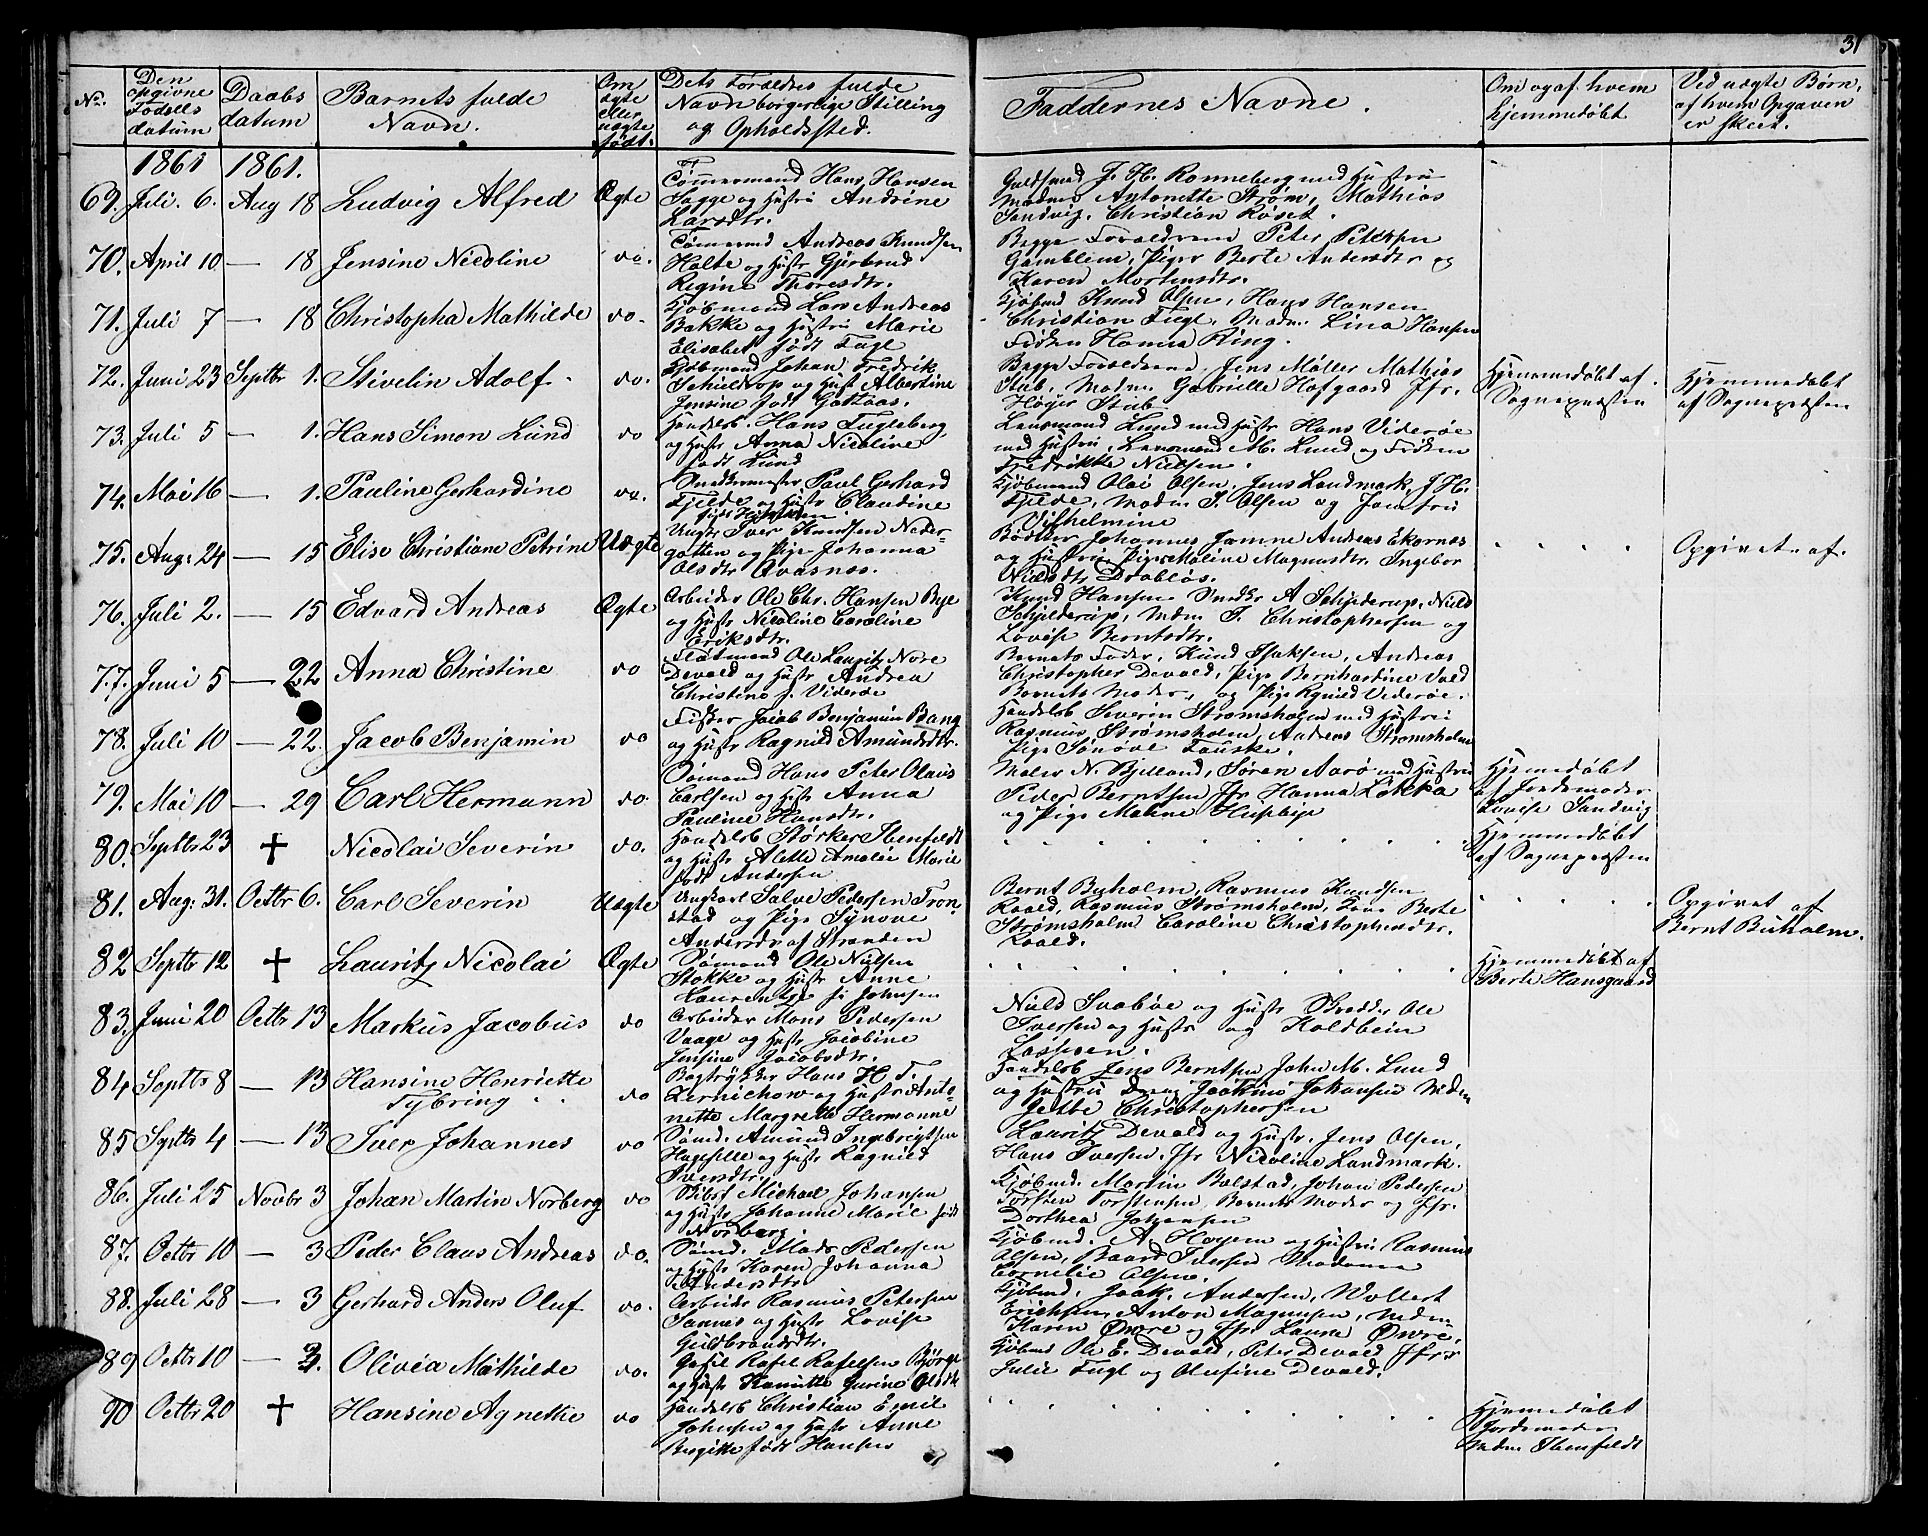 31
No. Den opgivne Fødsels datum Daabs datum Barnets fulde Navn. Om ægte eller uægte født. Dets Forældres fulde Navn borgerlige Stilling og Opholdssted. Faddernes Navne. Om og af hvem hjemmedøbt Ved uægte Børn, af hvem Opgaven er skeet.
1861 1861.
69. Juli. 6. Aug 18 Ludvig Alfred Ægte Tømermand Hans Hansen
Sagge og Hustru Andrine
Larsdtr.
Guldsmed J. H. Ronneberg med Hustru
Madme Antonette Strøm, Mathias
Sandvig, Christian Røset.
70. April 10 — 18 Jensine Nicoline do. Tømermd Andreas Knudsen
Holte og Hustr Gjertrud
Regine Thoresdtr.
Begge Forældrene Peter Petersen
Gamblem, Piger Berte Andersdtr og
Karen Mortensdtr.
71. Juli 7 — 18 Christopha Mathilde do. Kjøbmand Lars Andreas
Bakke og Hustru Marie
Elisabet født Fugl
Kjøbmd Knud Olsen, Hans Hansen
Christian Fugl, Madm. Lina Hansen
Frøken Hanna Ring.
72. Juni 23 Septbr 1. Stivelin Adolf do. Kjøbmand Johan Fredrik
Schieldrop og Hust Albertine
Jensine født Gottaas.
Begge Forældrene Jens Møller Mathias
Stub, Madm. Gabrielle Hofgaard Jfr.
Høyer Stub
Hjemmedøbt af
Sognepræsten
Hjemmedøbt
af Sognepræsten
73. Juli 5 — 1. Hans Simon Lund do Handelsb. Hans Fugleberg
og Hustr Anna Nicoline
født Lund
Lensmand Lund med Hustr Hans Viderøe
med Hustru, Lensmand M. Lund og Frøken
Fredrikke Nielsen.
74. Mai 16 — 1. Pauline Gerhardine do. Snedkermester Paul Gerhard
Fjelde og Hustr Claudine
Kjøbmand Olai Olsen, Jens Landmark, J H.
Fjelde, Madm S. Olsen og Jomfru
Vilhelmine
75. Aug. 24 — 15 Elise Christiane Petrine Uægte Ungkr Iver Knudsen Neder-
gotten og Pige Johanna
Olsdtr Ovasnes.
Bødker Johannes Jamne Andreas Ekornes
og Hustru Piger Maline Magnusdtr. Ingebor
Nielsdtr Drabløs.
Opgivet af.
76. Juli 2. — 15 Edvard Andreas Ægte Arbeider Ole Chr. Hansen Bye
og Hustr Nicoline Caroline
Eriksdtr.
Knud Hansen Snedkr A Schjelderup, Niels
Schjelderup, Mdm J. Christophersen og
Lovise Berntsdtr.
77. Juni 5 — 22 Anna Christine do Flødmand Ole Lauritz Nore
Devold og Hustr Andrea
Christine f. Viderøe
Barnets Fader, Knud Isaksen, Andreas
Christopher Devold, Pige Bernhardine Vold
Barnets Moder, og Pige Rgnild Viderøe.
78. Juli 10 — 22. Jacob Benjamin do Fisker Jacob Benjamin Bang
og Hustr Ragnild Amundsdtr.
Handelsb Severin Strømsholm med Hustru
Rasmus Strømsholm, Andreas Strømsholm
Pige Sønove Fauske.
79. Mai 10 — 29 Carl Hermann do. Sømand Hans Peter Olaus
Carlsen og Hstr Anna
Pauline Hansdtr.
Maler N. Bjelland, Søren Aarø med Hustru
Peder Berntsen Jfr Hanna Løkka
og Pige Malene Huseby
Hjemmedøbt
af Jordemoder
Lovise Sandvig
80. Septbr 23 † Nicolai Severin do. Handelsb Størker Ibenfeldt
og Hustr Alette Amalie Marie
født Andersen
Hjemmedøbt
af Sognepræsten
81. Aug. 31. Octbr 6. Carl Severin Uægte Ungkarl Salve Pedersen Tron-
stad og Pige Synove
Andersdr af Stranden
Bernt Buholm, Rasmus Knudsen
Raald, Rasmus Strømsholm, Berte
Strømsholm Caroline Christophersdtr.
Raald.
Opgivet af
Bernt Buholm.
82 Septbr 12 † Lauritz Nicolai Ægte Sømand Ole Nielsen
Stokke og Hustr Anne
Laurentze f. Johnsen
Hjemmedøbt af
Berte Hansgaard
83. Juni 20 Octbr 13 Markus Jacobus do Arbeider Mons Pedersen
Vaage og Hustr Jacobine
Jensine Jacobsdtr.
Niels Svabøe og Hustr Bredder Ole
Iversen og Hustr og Koldbein
84 Septbr 8 — 13 Hansine Henriette
Tybring do Bogtrykker Hans H T.
Zernichow og Hustr Anto-
nette Margrette Hermanne
Handelsb Jens Berntsen John M. Lund
og Hustru Joakim Johansen Mdm
Jette Christophersen
85 Septbr 4 — 13 Iver Johannes do Sømd. Amund Ingebrigtsen
Hagesille og Hustr Ragnild
Iversdtr.
Lauritz Devold og Hustr. Jens Olsen,
Hans Iversen, Jfr Nicoline Landmark.
86. Juli 25 Novbr 3 Johan Martin Norberg do Michael Johansen
og Hustr Johanne Marie født
Norberg.
Kjøbmd. Martin Bolstad, Johan Pedersen
Torsten Torstensen, Barnets Moder og Jfr.
Dorthea Johansen
87. Octbr 10 — 3 Peder Claus Andreas do. Sømd. Mads Pedersen
og Hustr Karen Johanna
Andersdtr
Kjøbmd. A. Hoyem og Hustru Rasmus
Olsen, Baard Iversen Madame
Cornelie Olsen.
88. Juli 28 — 3 Gerhard Anders Oluf do. Arbeidr Rasmus Petersen
Sannes og Hustr Lovise
Guldbrandsdtr.
Kjøbmd, Joak. Andersen, Wollert
Erichsen, Anton Magnussen, Mdm
Karen Øwre og Jfr Laura Øwre.
89 Octbr 10 — 3. Olivia Mathilde do. Rafel Rafelsen Bjørge
og Hustr Kamitte Gurine Olsdtr
Kjøbmd Ole E. Devold, Peter Devold Jfrr
Julie Fugl og Olufine Devold.
90 Octbr 20 † Hansine Agnethe do Handelsb Christian Emil
Johnsen og Hustr Anne
Birgitte født Hansen
Hjemmedøbt
Jordemoder
Mdm Ibenfeldt